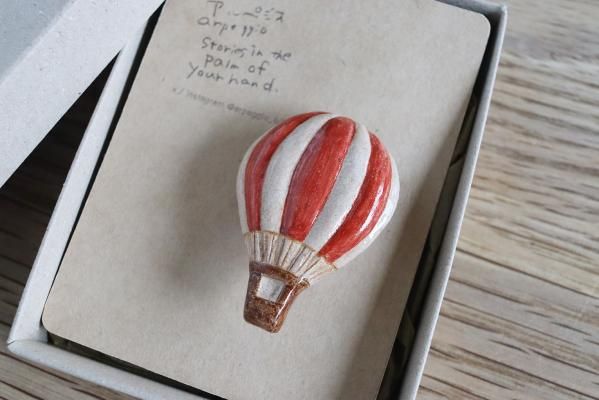 arpeggio
Stories in the
palm of
your hand.
X / Instagram @arpeggio_